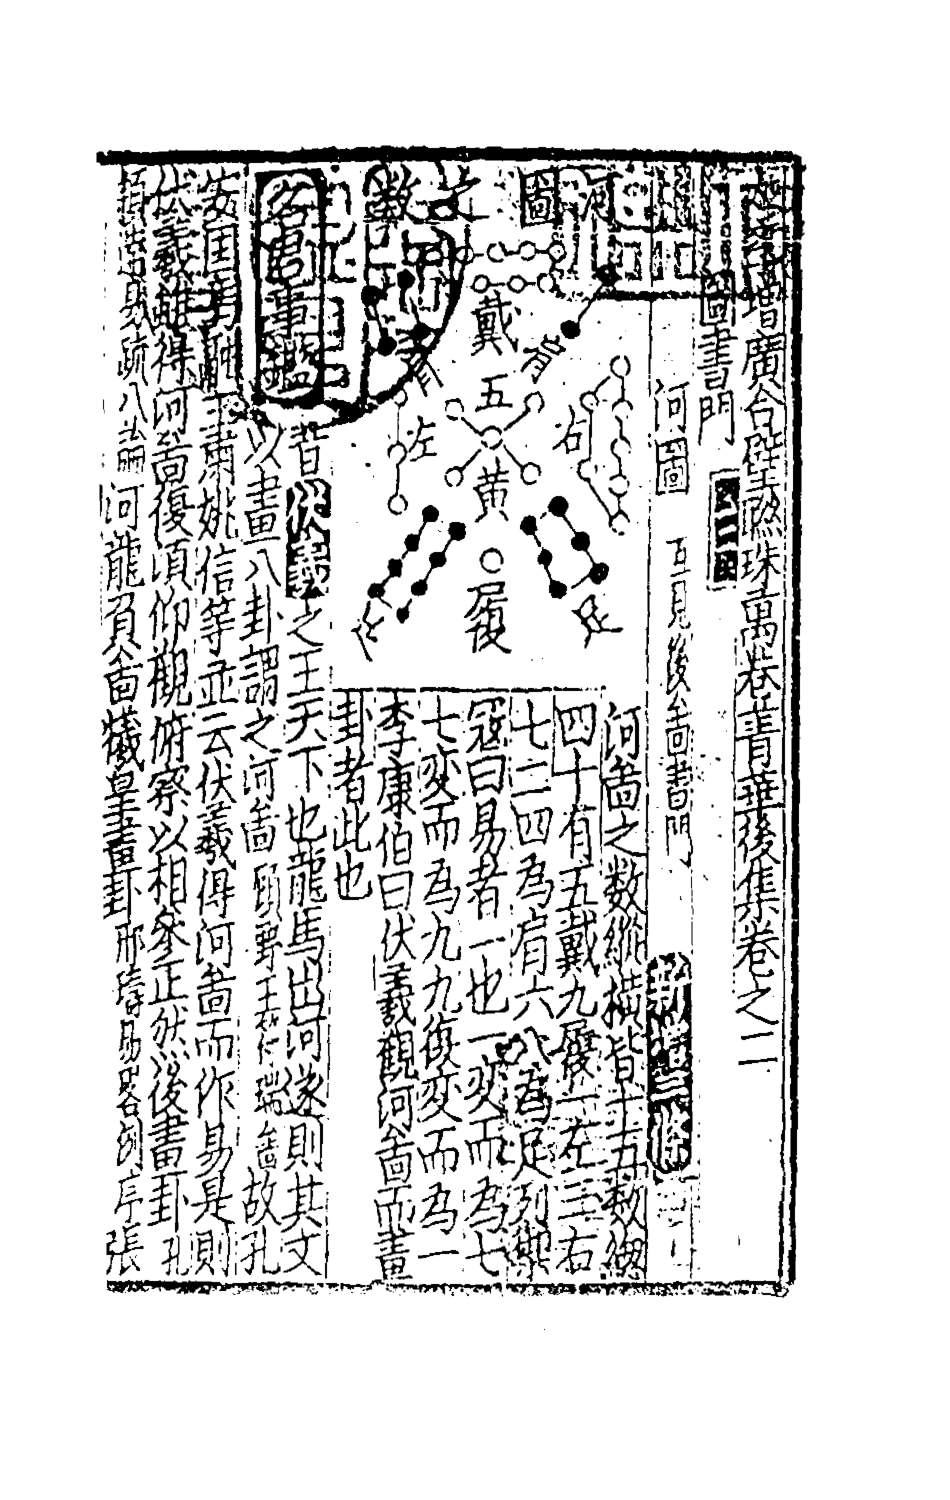 增廣合璧聯珠萬卷菁華後集卷之二
圖書門
河圖 互見後啚書門 新增三條
河圖
之數
戴
九
肩
肩
右
左
五
黄
履
足
足
河啚之数縱橫皆十五数總
四十有五戴九履一左三右
七二四為肩六八為足列禦
冦曰易者一也一变而為七
七变而為九九復变而為一
李康伯曰伏羲觀河啚而畫
卦者此也
名君事鑑
昔伏羲之王天下也龍馬出河遂則其文
以畫八卦謂之河啚 顧野王符瑞啚 故孔
安国馬融王肅姚信等並云伏羲得河啚而作易是則
伏羲雖得河啚復須仰觀俯察以相參正然後畫卦 孔
頴達易疏八論 河龍負啚犧皇畫卦 邢璹易畧例序 張